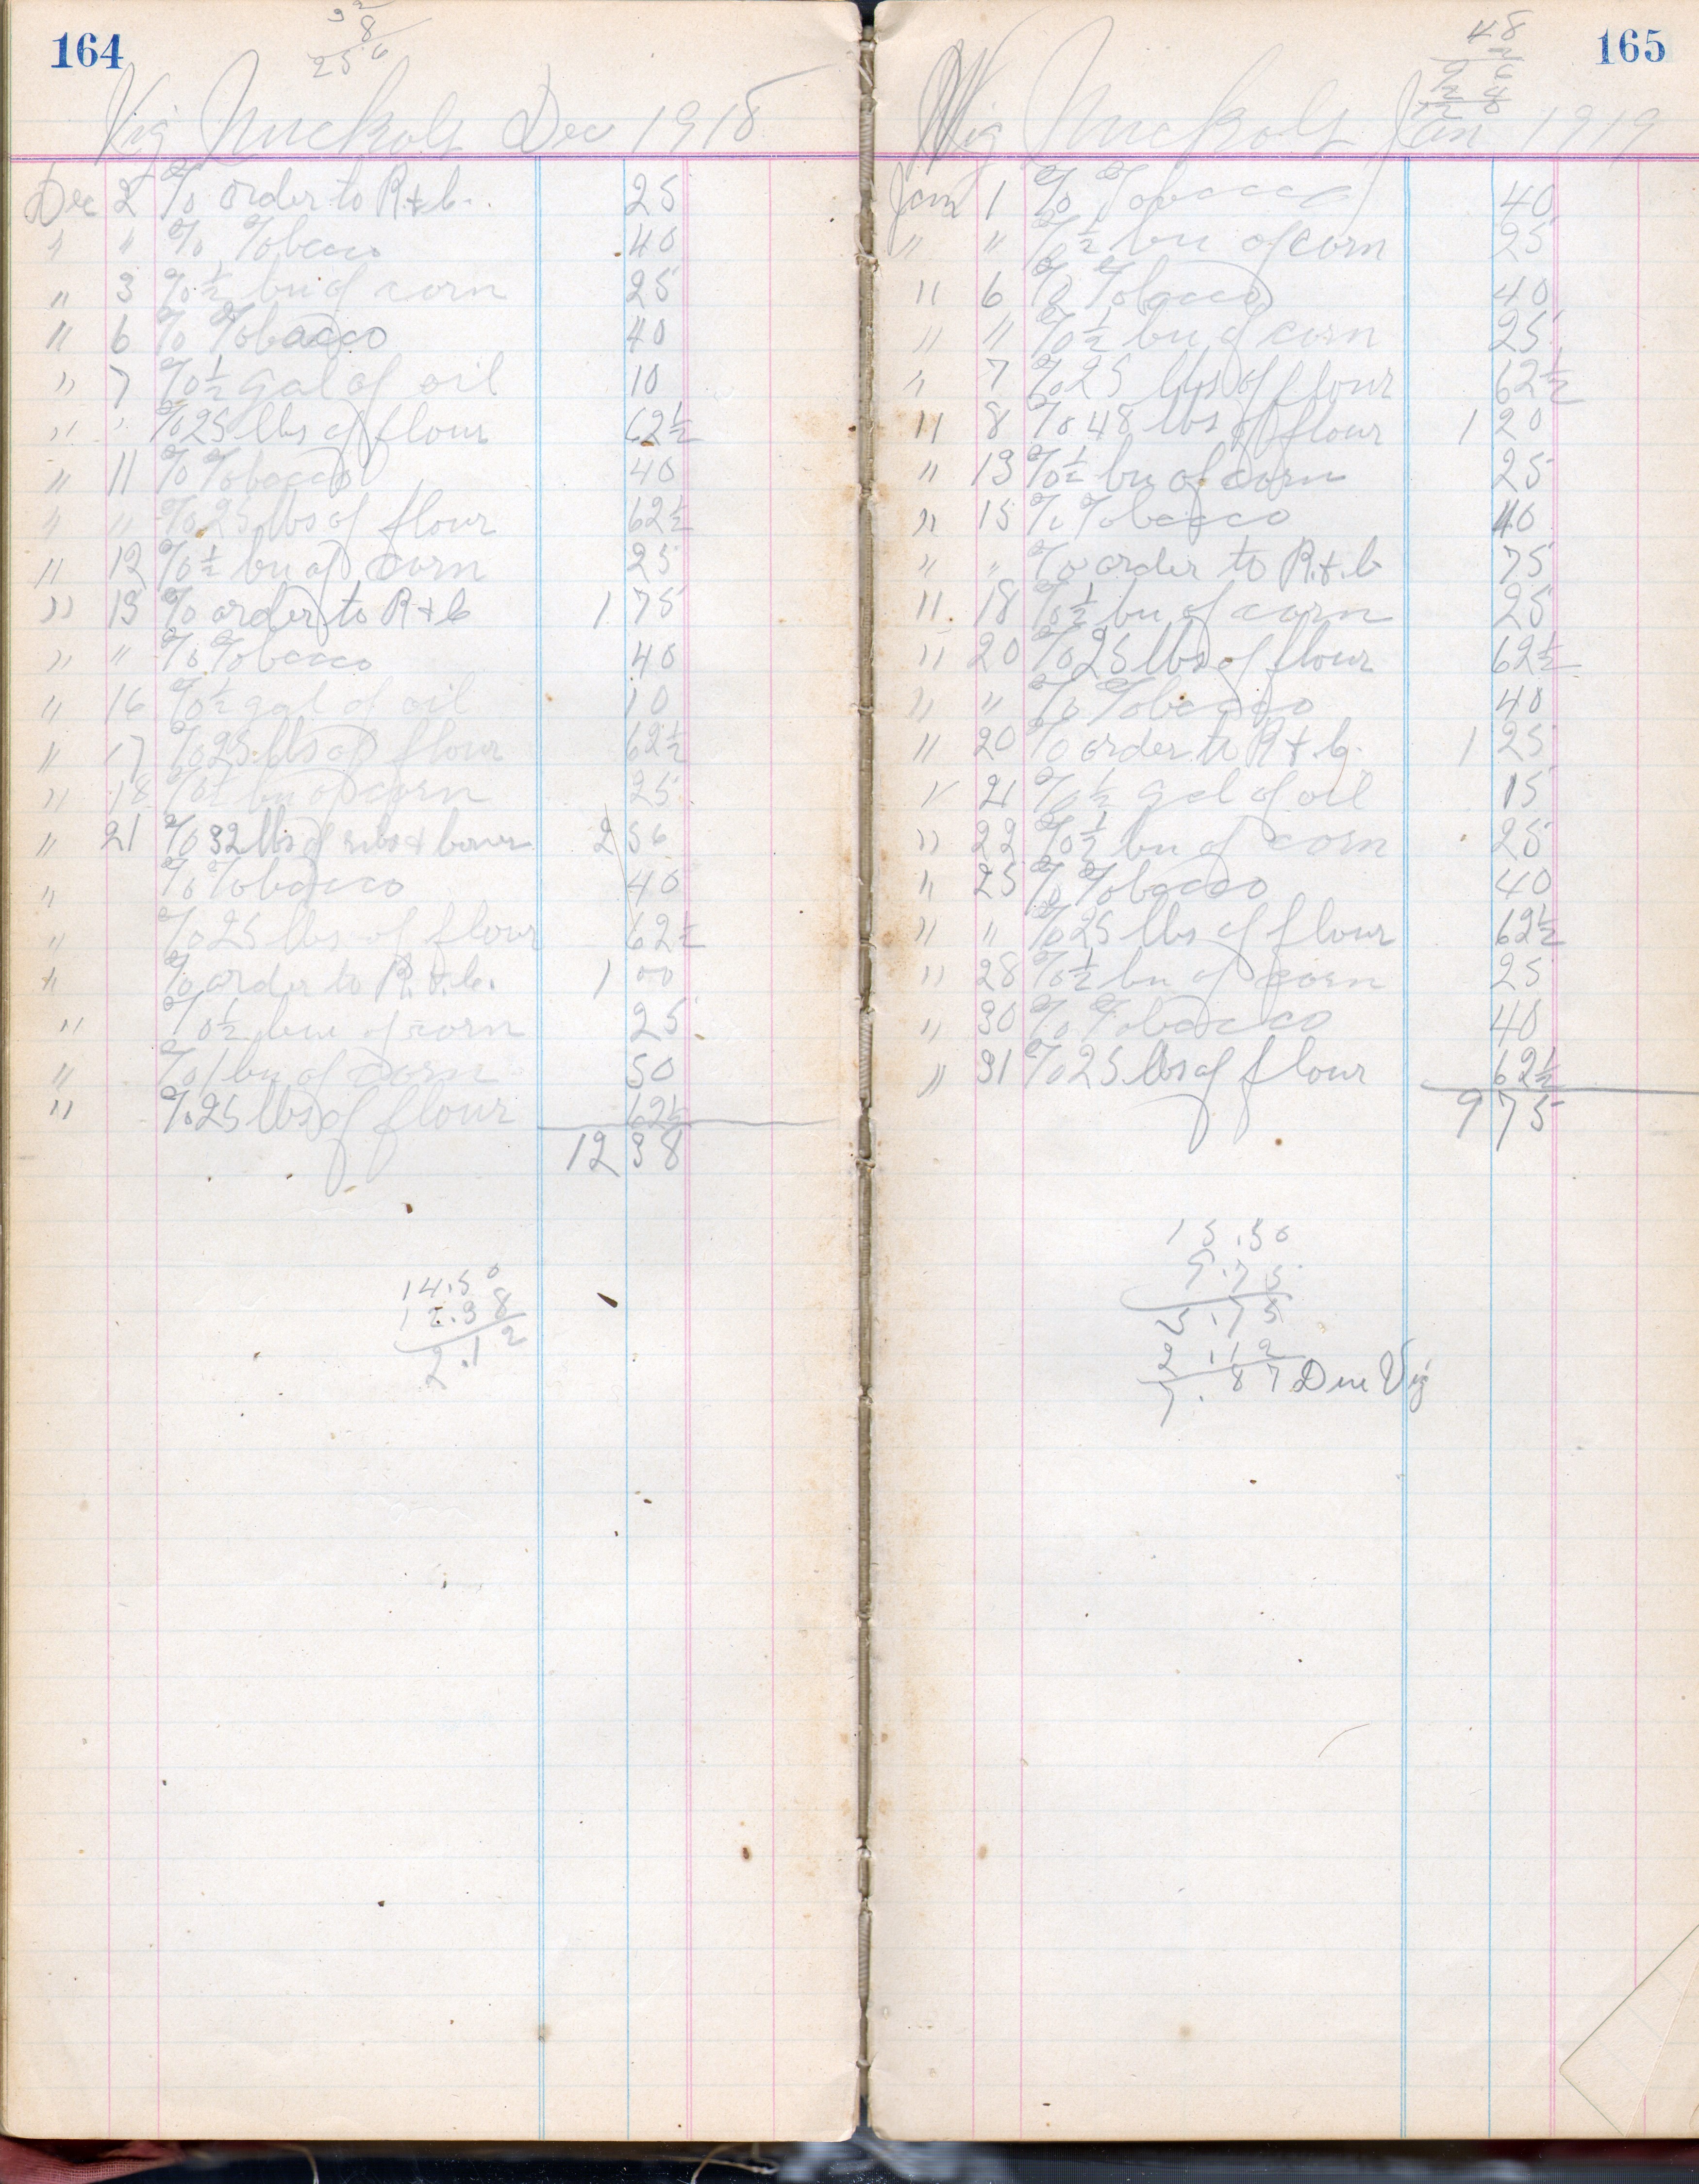 164
32
8
256
Vig Nuckols Dec 1918
Dec 2 % order to R+b. 25
" " % Tobacco 40
" 3 % ½ bu of corn 25
" 6 % Tobacco 40
" 7 % ½ gal of oil 10
" " % 25 lbs of flour 62½
" 11 % Tobacco 40
" " % 25 lbs of flour 62½
" 12 % ½ bu of corn 25
" 13 % order to R+b 1 75
" " % Tobacco 40
" 16 % ½ gal of oil 10
" 17 % 25 lbs of flour 62½
" 18 % ½ bu of corn 25
" 21 % 32 lbs of ribs + bones 2 56
" % Tobacco 40
" % 25 lbs of flour 62½
" % order to R.+b. 1 00
" % ½ bu of corn 25
" % 1 bu of corn 50
" % 25 lbs of flour 62½
12 38
14.50
12.38
2.12
165
48
Vig Nuckols Jan 1919
Jan 1 % Tobacco 40
" " % ½ bu of corn 25
" 6 % Tobacco 40
" " % ½ bu of corn 25
" 7 % 25 lbs of flour 62½
" 8 % 48 lbs of flour 1 20
" 13 % ½ bu of corn 25
" 15 % Tobacco 40
" " % order to R.+.b 75
" 18 % ½ bu of corn 25
" 20 % 25 lbs of flour 62½
" " % Tobacco 40
" 20 % order to R+b. 1 25
" 21 % ½ gal of oil 15
" 22 % ½ bu of corn 25
" 25 % Tobacco 40
" " % 25 lbs of flour 62½
" 28 % ½ bu of corn 25
" 30 % Tobacco 40
" 31 % 25 lbs of flour 62½
9 75
15.50
9.75
5.75
2.12
7.87 Due Vig